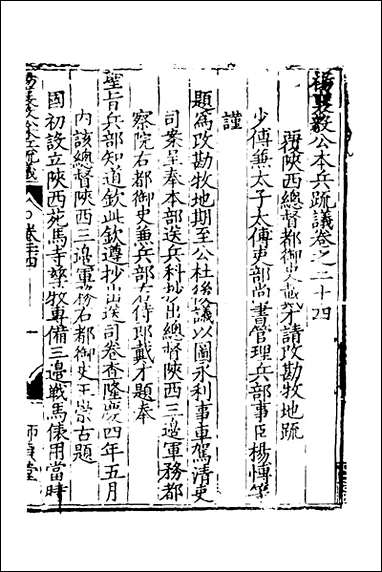 楊襄毅公本兵疏議卷之二十四
覆陝西總督都御史戴才請改勘牧地疏
少傅兼太子太傅吏部尚書管理兵部事臣楊博等
謹
題為改勘牧地期至公杜後議以圖永利事車駕清吏
司案呈奉本部送兵科抄出總督陝西三邊軍務都
察院右都御史兼兵部右侍郎戴才題奉
聖旨兵部知道欽此欽遵抄出送司卷查隆慶四年五月
內該總督陝西三邊軍務右都御史王崇古題
國初設立陝西苑馬寺孳牧專備三邊戰馬俵用當時
楊襄毅公本兵疏議 卷二十四 一 師貞堂